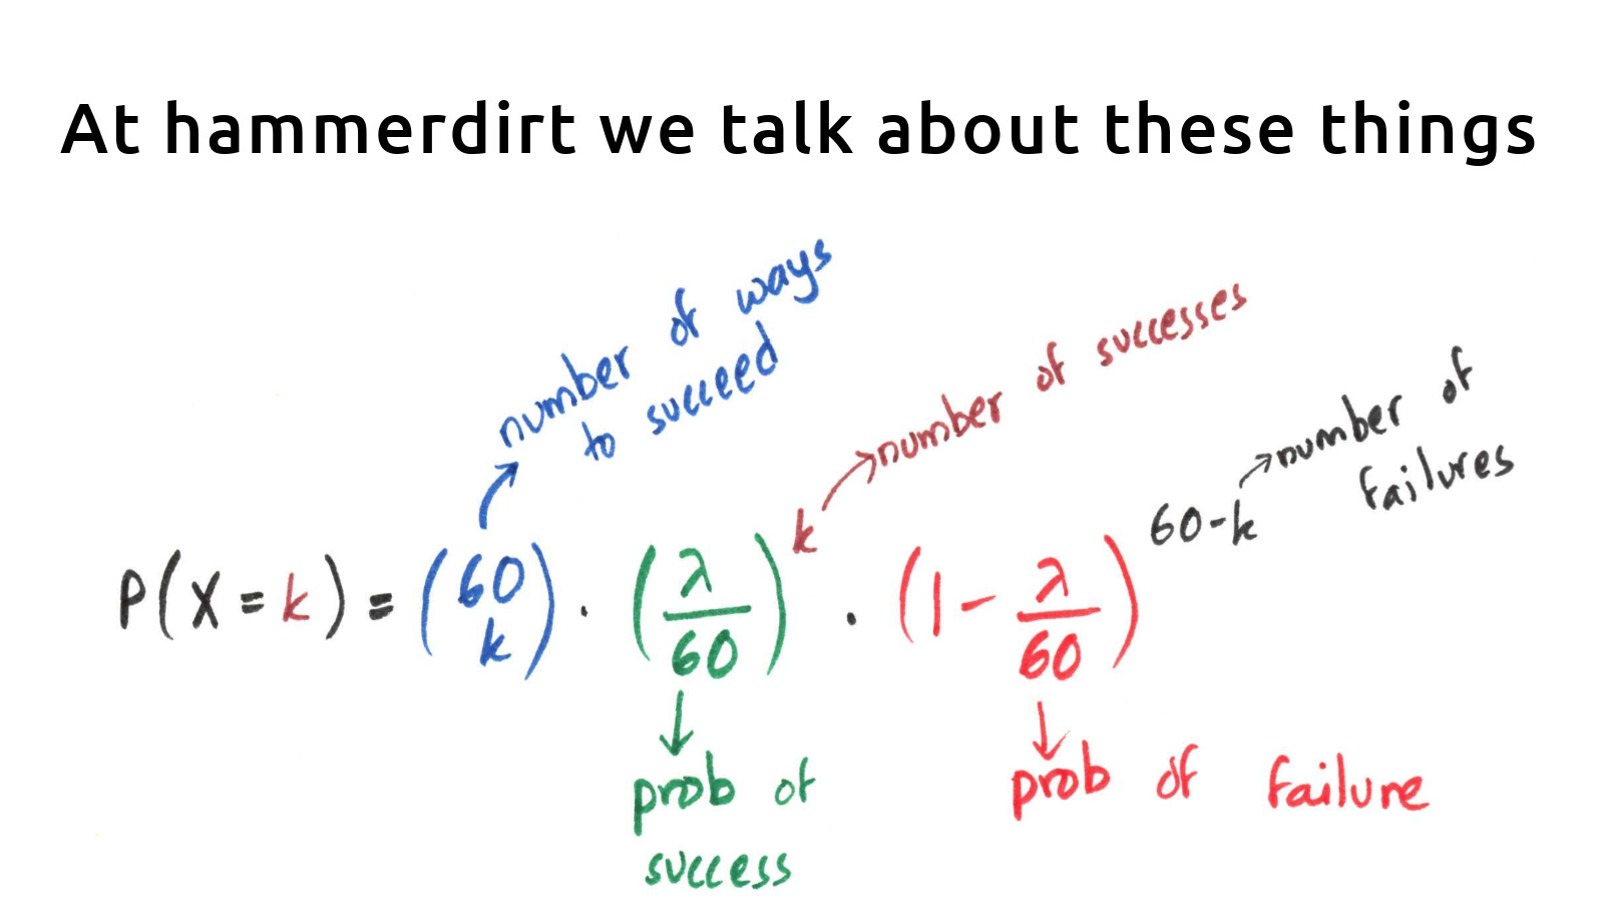 At hammerdirt we talk about these things
number of ways
to succeed
number of successes
number of
failures
P(X=k) = (60 k) · (λ/60)^k · (1 - λ/60)^60-k
prob of
success
prob of failure